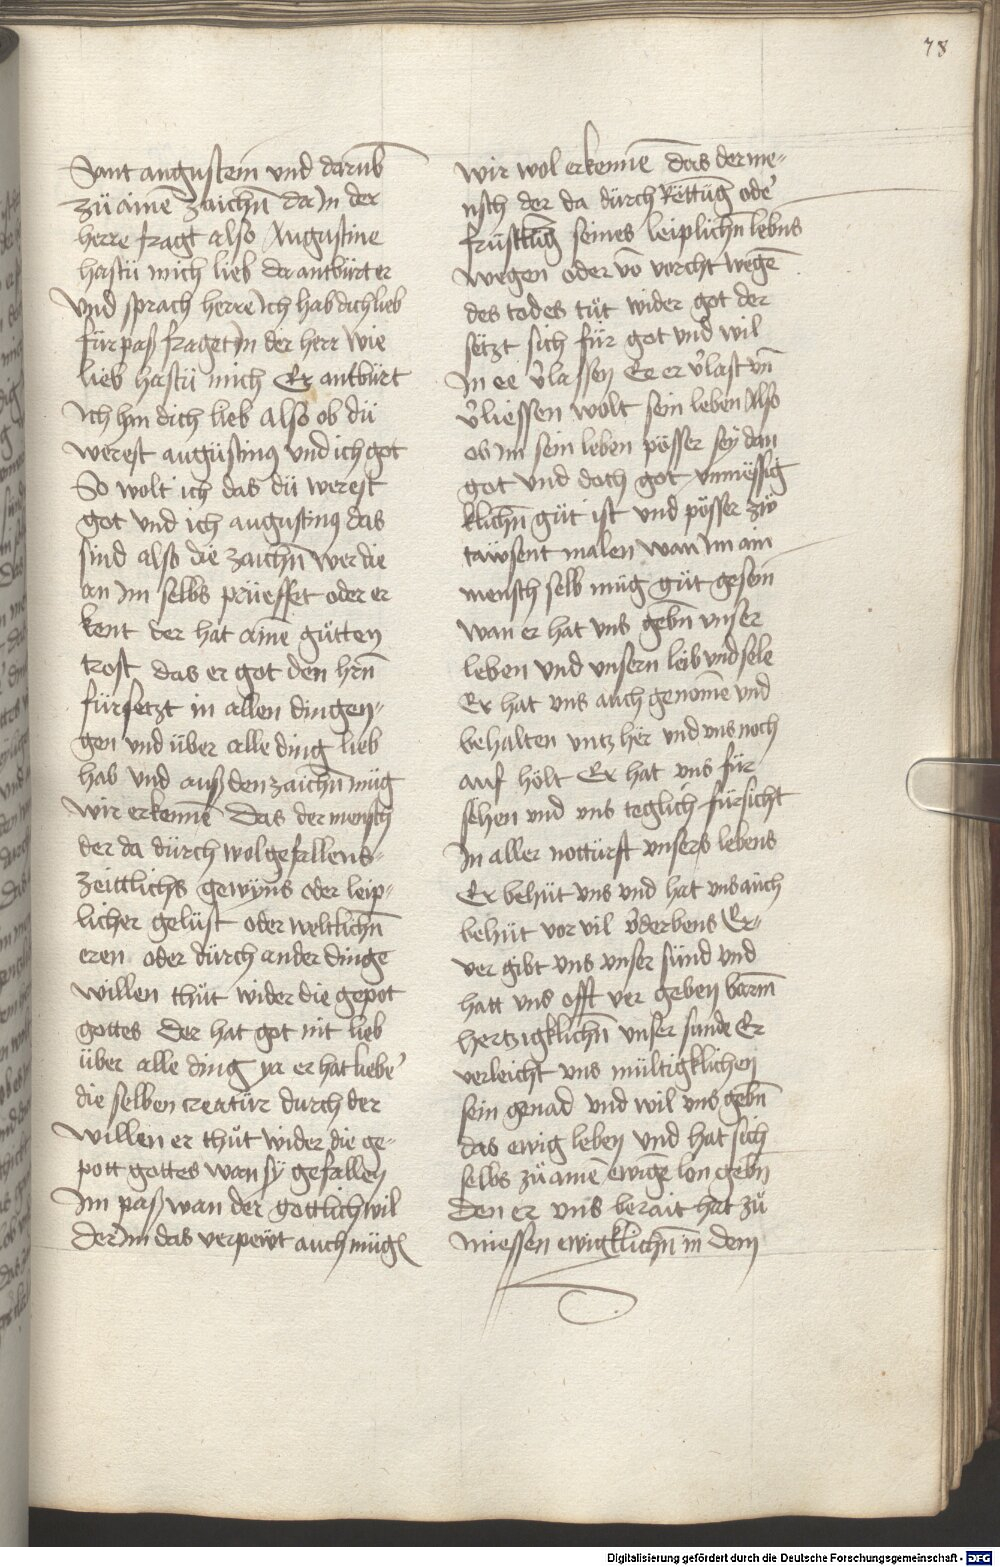 78
Sant augustein und darub̄
zü aineͫ zaichn̄ da jn der
herre fragt also Augustine
hastü mich lieb do antbürt er
und sprach herre jch hab dich lieb
für paß fraget jn der herr wie
lieb hastü mich Er antbürt
Jch han dich lieb also ob dü
werest augüstinꝰ und ich got
So wolt ich das dü werest
got und ich augustinꝰ das
sind also die zaichn̄ wer die
an jm selbs prüeffet oder er
kent der hat aīnē gütten
trost das er got den hrn̄
für setzt in allen dingen⸗
gen und über alle ding lieb
hab und auß den zaichn̄ müg
wir erkennē Das der mensch
der da dürch wolgefallens⸗
zeittlichs gewyns oder leip⸗
licher gelüst oder weltlichn̄
eren oder dürch ander dinge
willen thůt wider die gepot
gottes Der hat got nit lieb
über alle ding ya er hat liebe᾽
die selben creatür durch der
willen er thůt wider die ge⸗
pott gottes wan sy gefallen
Jm paß wan der gottlich wil
Der jm das verpewt auch müg
wir wol erkennē das der me⸗
nsch der da dürch rettūg ode᾽
früsttūg seines leiplichn̄ lebns
wegen oder vō vorcht wegē
des todes tůt wider got der
setzt sich für got und wil
jn ee v᾽lassen Ee er v᾽last vn̄
v᾽liessen wolt sein leben Also
ob jm sein leben pösser sey dan
got und doch got unmëssig
klichn̄ güt ist und pösser zw
tawsent malen wan jm ain
mensch selb müg güt gesein
wan er hat uns gebn̄ unser
leben und unsern leib und sele
Er hat uns auch genomē und
behalten untz her und uns noch
auf hölt Er hat uns für
sehen und uns teglich fürsicht
jn aller nottürft unsers lebens
Er behüt uns und hat uns auch
behüt vor vil v᾽derbens Er⸗
ver gibt uns unser sünd und
hatt uns offt ver geben barm̄
hertzigklichn̄ unser sunde Er
verleicht uns mültigklichen
sein genad und wil uns gebn̄
das ewig leben und hat sich
selbs zü ainē ewigē lon gebn
den er uns berait hat zů
niessen ewigklichn̄ in dem
Digitalisierung gefördert durch die Deutsche Forschungsgemeinschaft - DFG